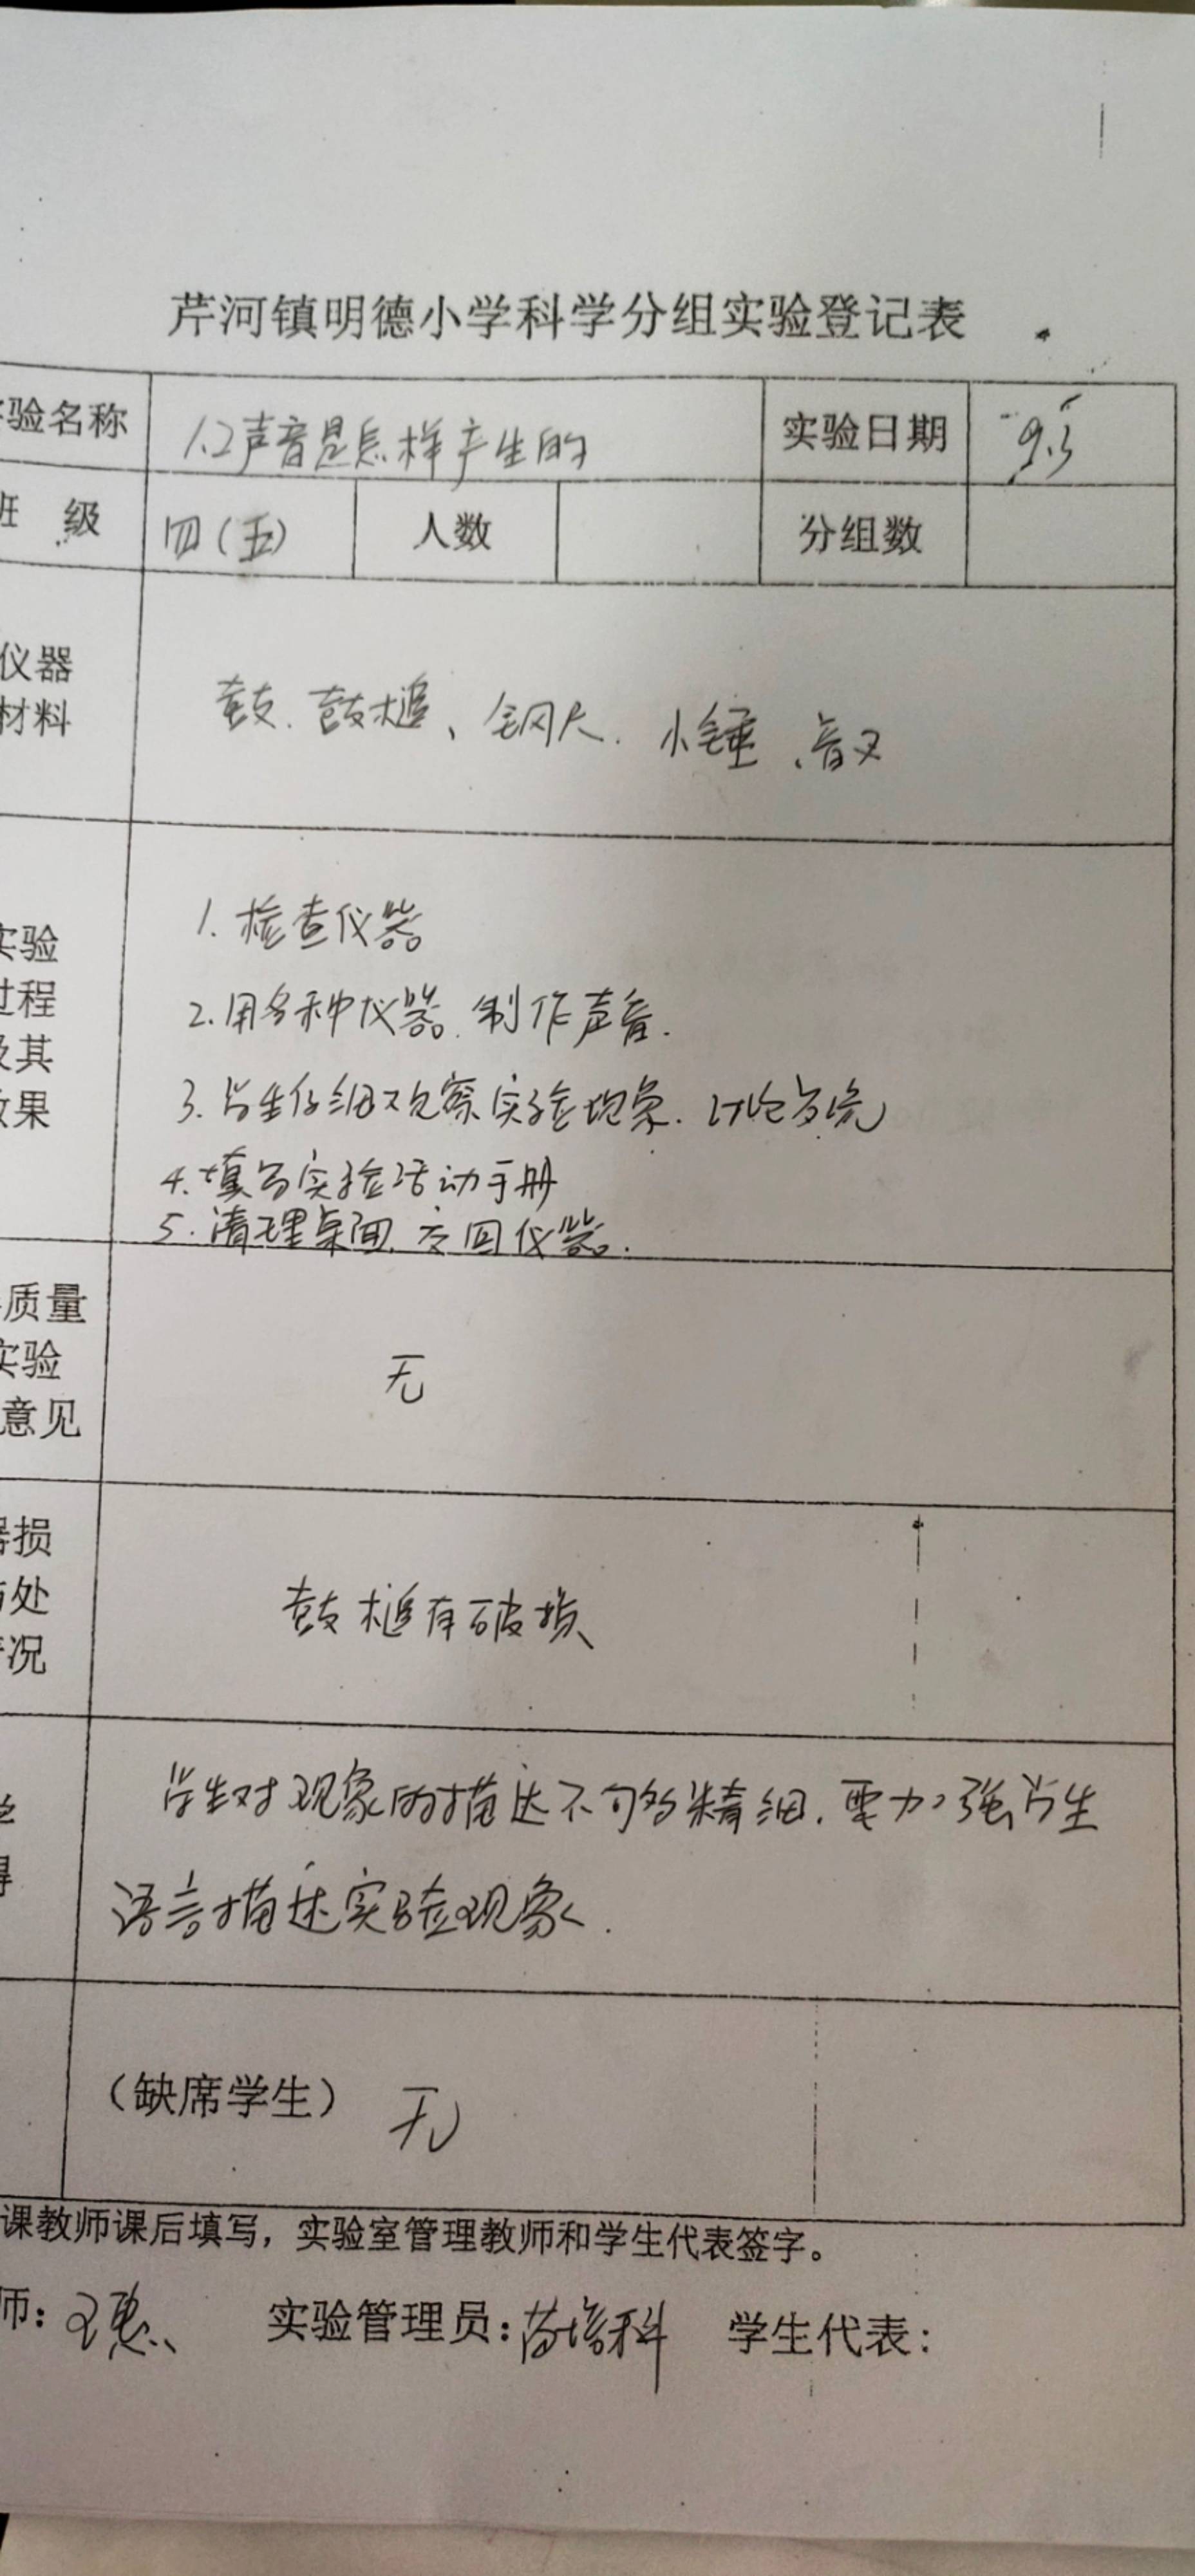 芹河镇明德小学科学分组实验登记表
验名称 1.2声音是怎样产生的 实验日期 9.3
班 级 四(五) 人数 分组数
仪器
材料
鼓、鼓槌、钢尺、小锤、音叉
实验
过程
及其
效果
1.检查仪器
2.用各种仪器制作声音.
3.学生仔细观察实验现象.讨论方流
4.填写实验活动手册
5.清理桌面,交回仪器.
质量
实验
意见
无
器损
处
况
鼓槌有破损
学生对现象的描述不够精细.要加强学生
语言描述实验现象.
得
(缺席学生) 无
课教师课后填写，实验室管理教师和学生代表签字。
师: 王惠 实验管理员: 苗培科 学生代表: